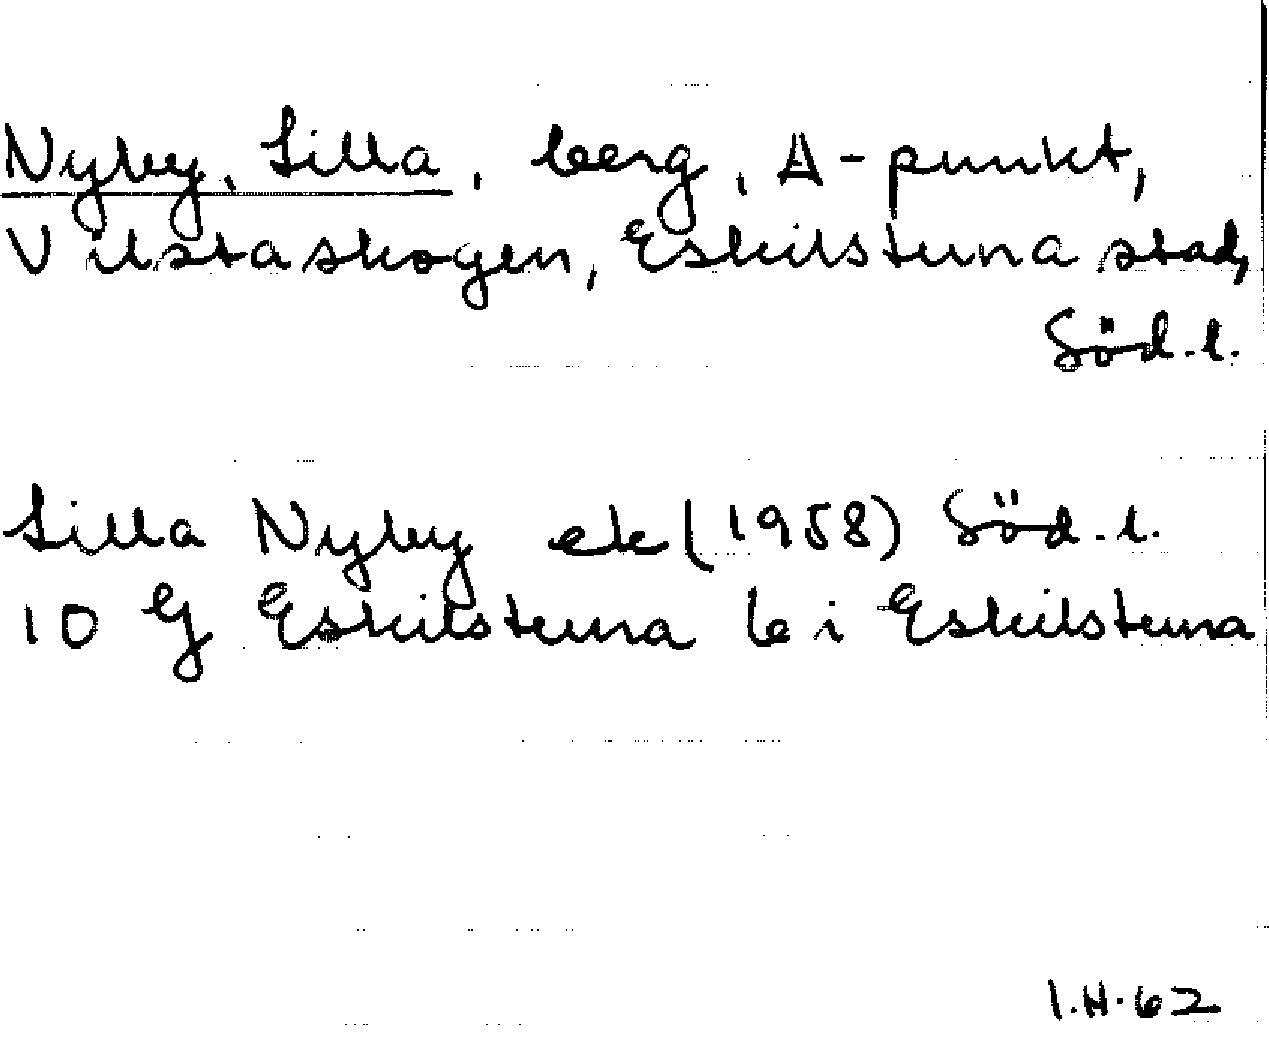 Nyby, Lilla, berg, A-punkt,
Vilstaskogen, Eskilstuna stad,
Söd.l.
Lilla Nyby ek (1958) Söd.l.
10 G Eskilstuna 6 i Eskilstuna
I.H.62